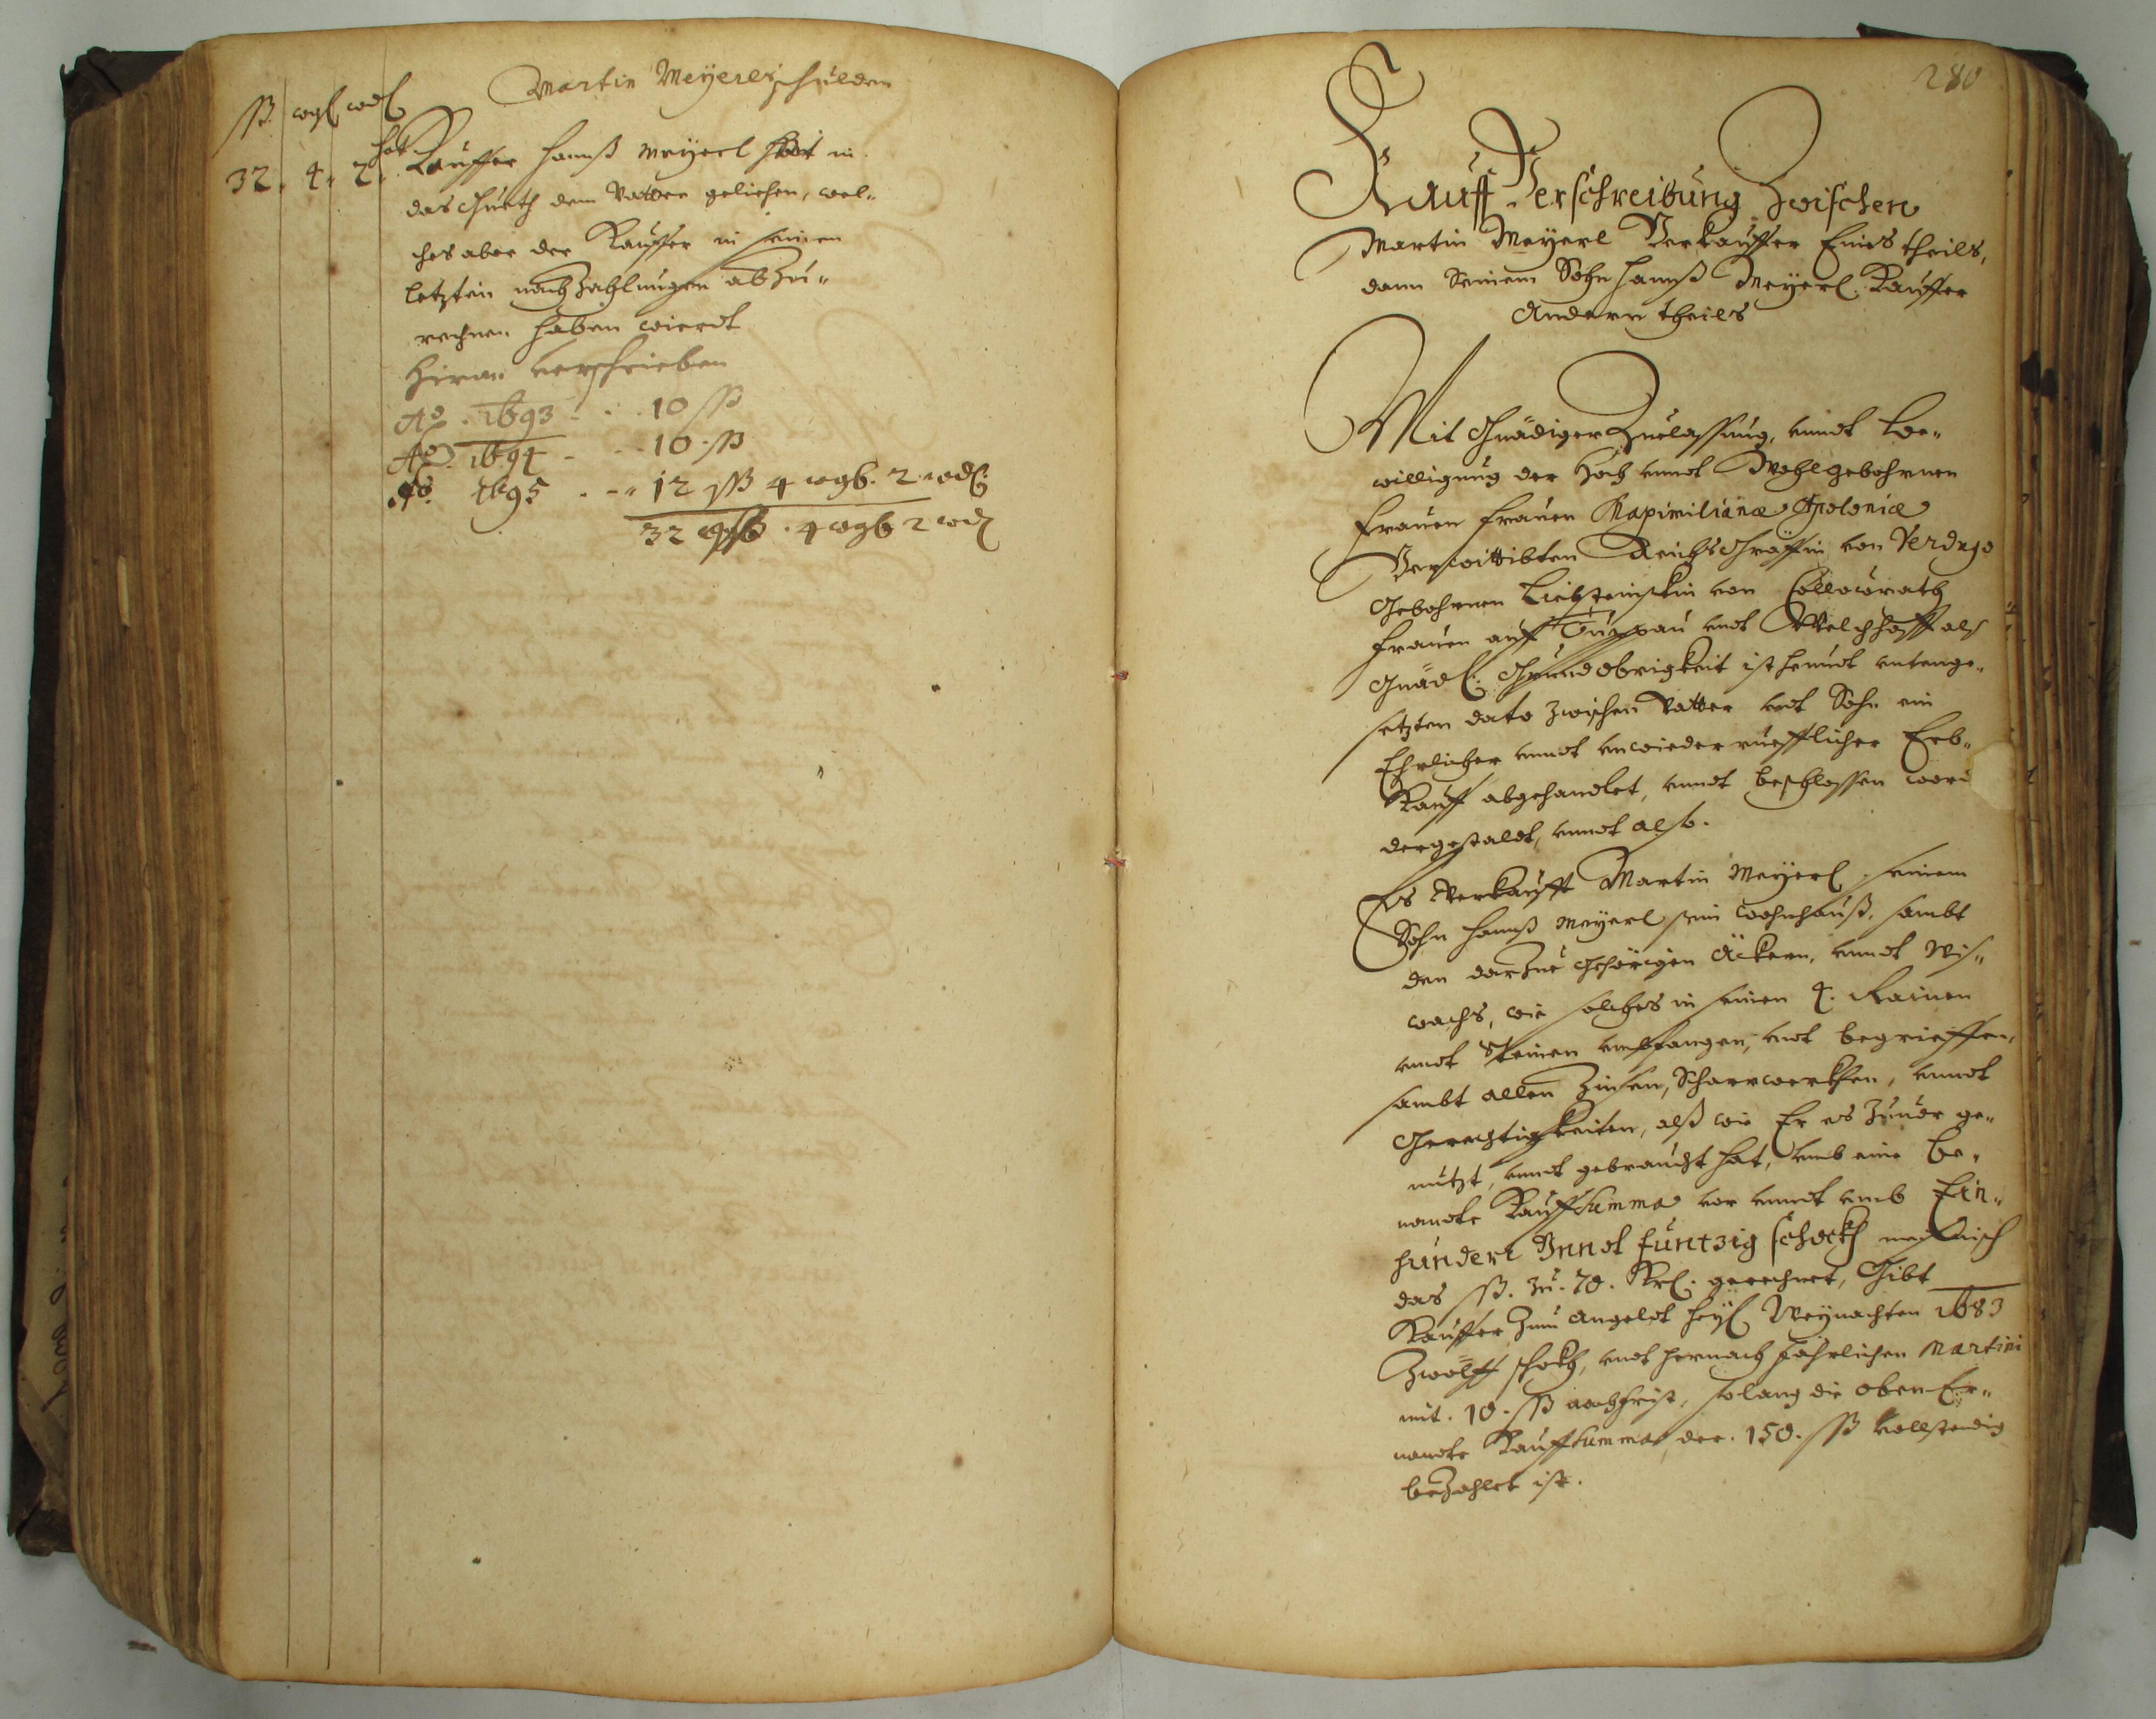 Martin Meÿerls schulden
ßß. wgl wdl
hat
32. 4. 2. Kauffer Hannß Meÿerl in
das Gueth dem Vatter geliehen, wel-
ches aber der Kauffer in seinen
letzten nachzahlungen abzu-
rechnen haben wierdt
Hiran verschrieben
Aō. 1693 - . . 10 ßß
Aō. 1694 - - . 10. ßß
Aō. 1695 . - . 12 ßß 4 wgl. 2 wdl:
32 ßß . 4 wgl 2 wdl
280
Kauff Verschreibung Zwischen
Martin Meÿerl Verkauffer Eines theils,
dann Seinem Sohn Hannß Meÿerl Kauffer
Andern theils
Mit Gnädiger Zuelassung, unndt be-
willigung der Hoch unndt Wohlgebohrnen
Frauen Frauen Maximilianæ Apoloniæ
Verwittibten Reichs Gräffin von Verdugo
Gebohrnen Liebsteinskin von Collowrath
Frauen auff Tuppau undt Welchhoff als
Gnädl: Grundobrigkeit ist heundt untenge-
setzten dato zwischen Vatter undt Sohn ein
Ehrlicher unndt unwiederruefflicher Erb-
Kauff abgehandlet, unndt beschlossen word
dergestaldt, unndt also.
Es Verkaufft Martin Meÿerl seinem
Sohn Hannß Meÿerl sein wohnhauß, sambt
den darzue gehörigen Äckern, unndt Wis-
wachs, wie solches in seinen 4. Rainen
undt Steinen umbfangen, undt begrieffen,
sambt allen Zinsen, Scharwerkhen, unndt
Gerechtigkeiten, alß wie Er es zuuor ge-
nutzt, unndt gebraucht hat, umb eine be-
nandte Kauffsumma vor unndt umb Ein-
hundert Vnndt funtzig schockh meißnisch
das ßß. zu. 70. Krl: gerechnet, Gibt
Kauffer zum Angeldt heÿl Weÿnachten 1683
Zwölff schockh, undt hernach Jährlichen Martini
mit. 10. ßß nachfrist, solang die oben Er-
nandte Kauffsumma der. 150. ßß vollstendig
bezahlet ist.